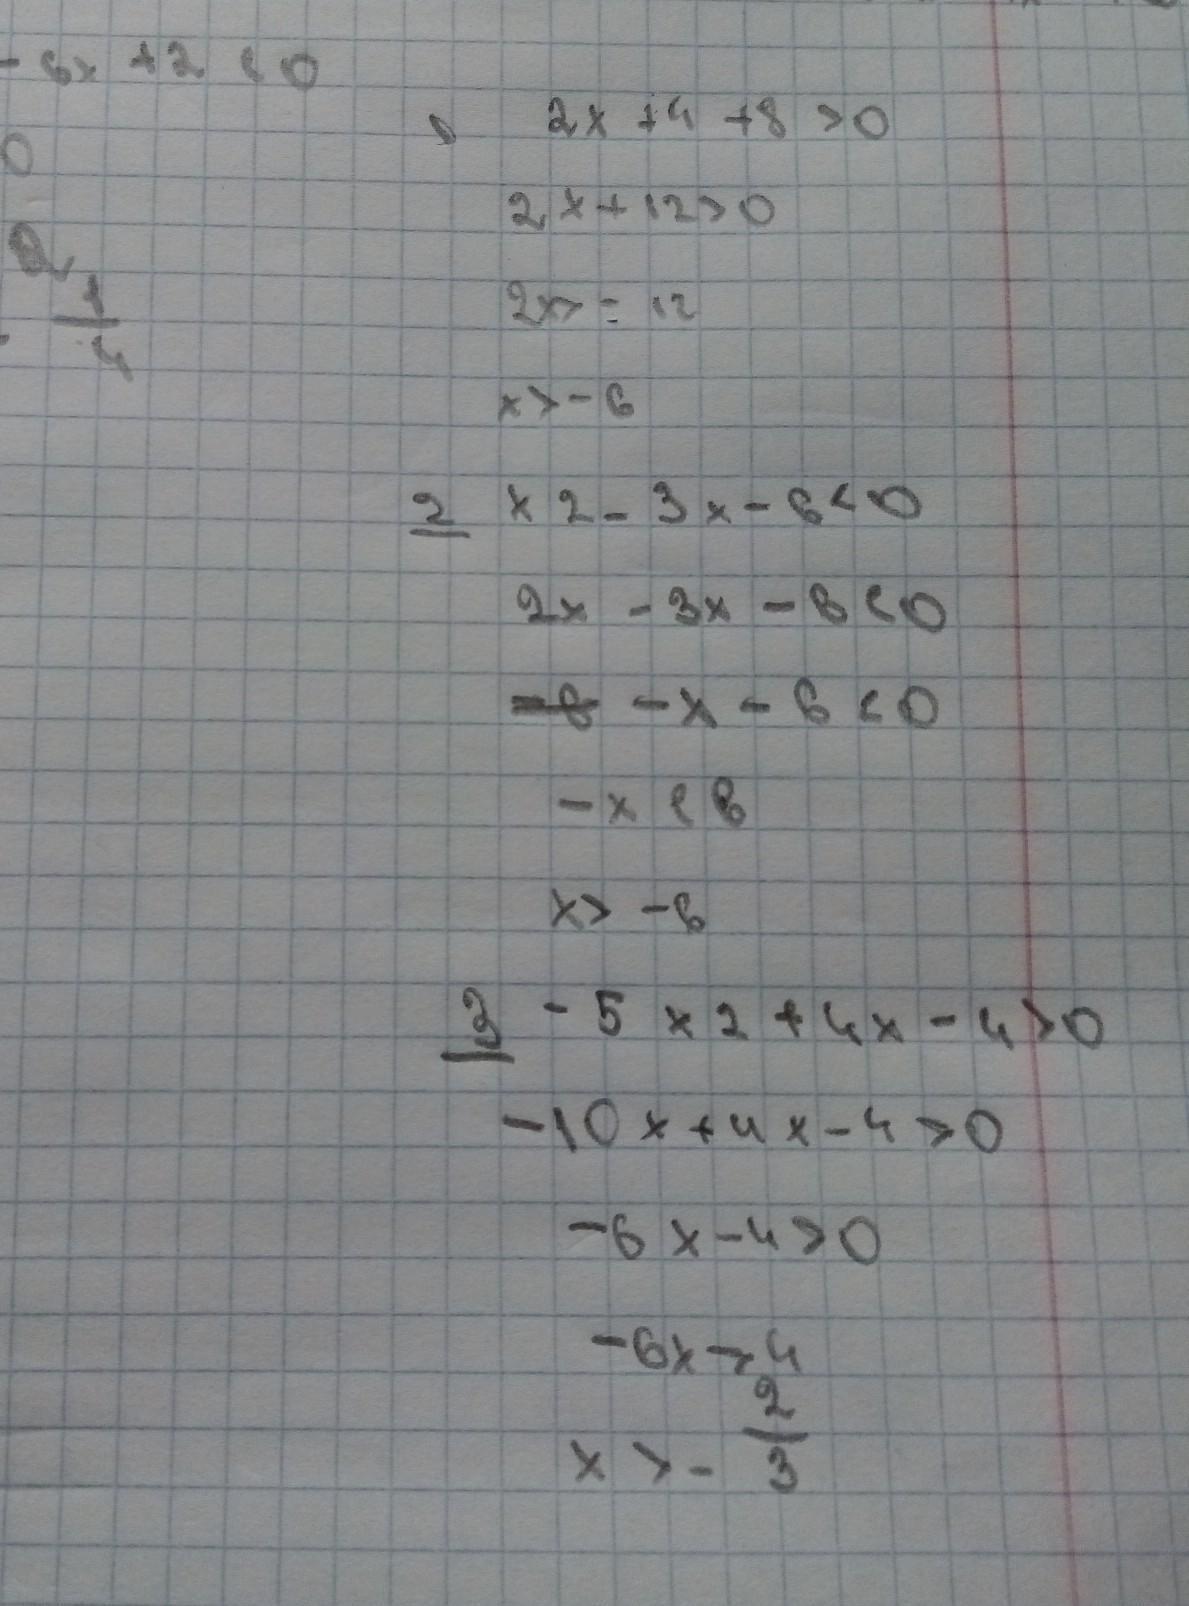 - 6x +2 < 0
0
2
1
4
2x +4 +8 >0
2x+12>0
2x> = 12
x>-6
2 x2-3x-6<0
2x -3x -6<0
-x -6<0
-x <6
x> -6
3 -5x2+4x-4>0
-10x+4x-4>0
-6x-4>0
-6x>4
x >- 2
3